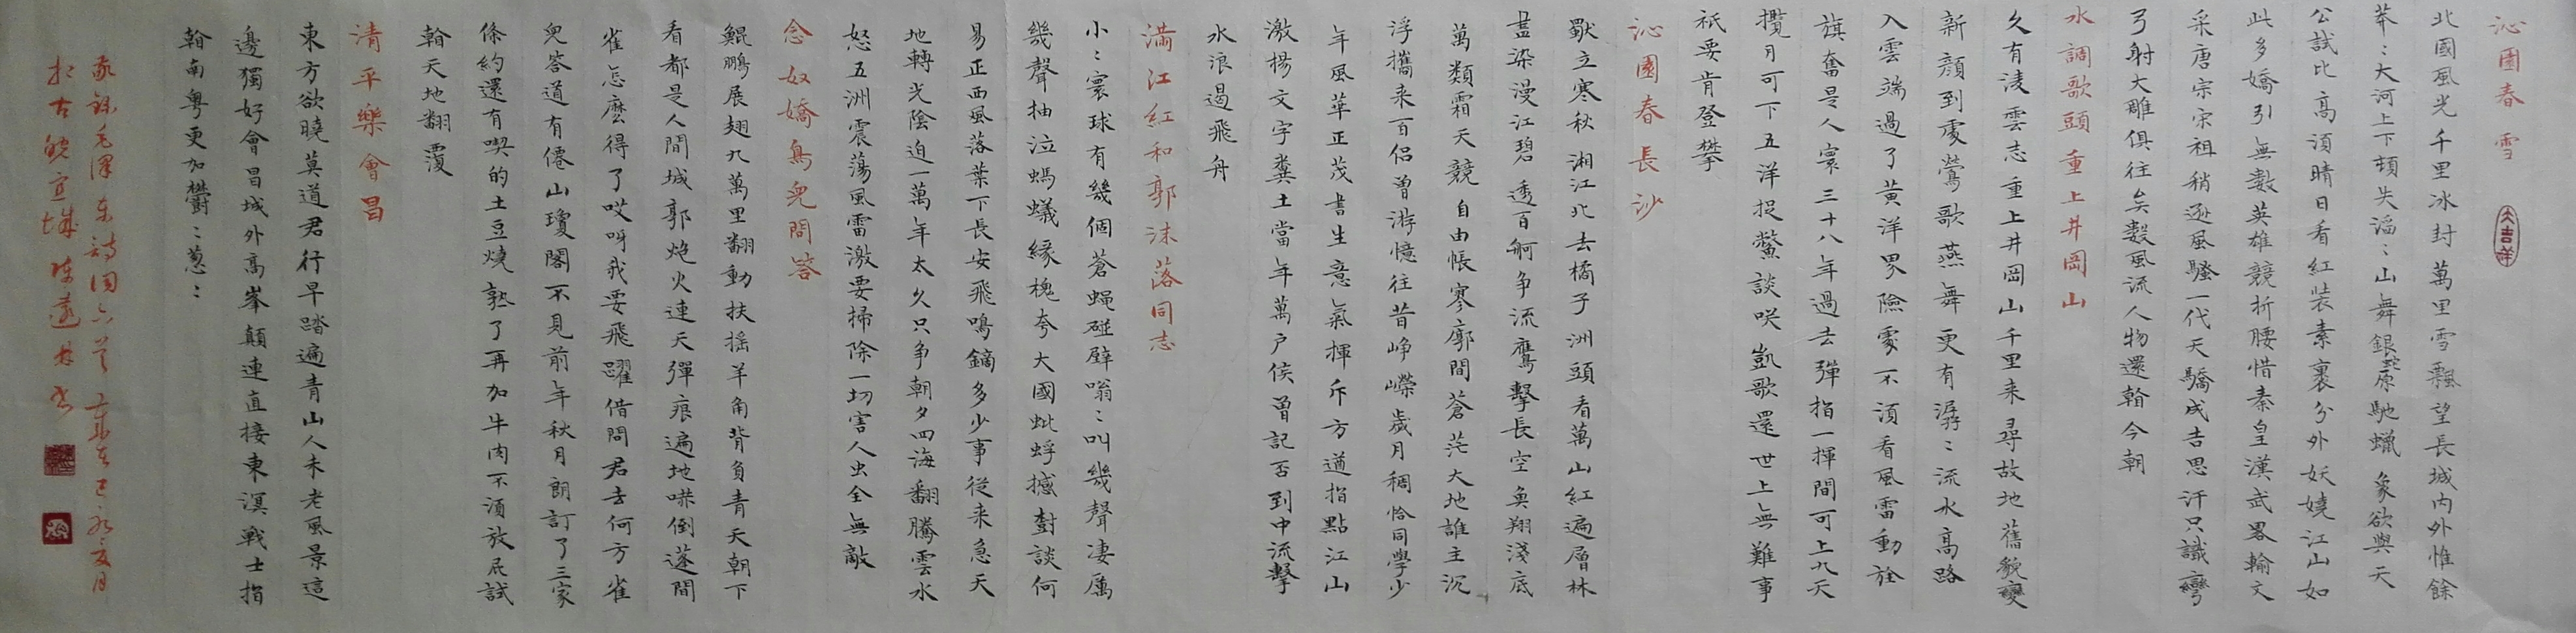 沁園春 雪
大吉祥
北國風光千里冰封萬里雪飄望長城内外惟餘
莽〻大河上下頓失滔〻山舞銀蛇原馳蠟象欲與天
公試比高須晴日看紅装素裹分外妖嬈江山如
此多嬌引無數英雄競折腰惜秦皇漢武畧輸文
采唐宗宋祖稍遜風騷一代天驕成吉思汗只識彎
弓射大雕俱往矣數風流人物還翰今朝
水調歌頭重上井岡山
久有淩雲志重上井岡山千里来尋故地舊貌變
新顔到處鶯歌燕舞更有潺〻流水高路
入雲端過了黄洋界險處不須看風雷動旌
旗奮是人寰三十八年過去彈指一揮間可上九天
攬月可下五洋捉鱉談咲凱歌還世上無難事
祇要肯登攀
沁園春長沙
獨立寒秋湘江北去橘子洲頭看萬山紅遍層林
盡染漫江碧透百舸争流鷹擊長空魚翔淺底
萬類霜天競自由悵寥廓問蒼茫大地誰主沉
浮攜来百侣曾游憶往昔崢嶸歲月稠恰同學少
年風華正茂書生意氣揮斥方遒指點江山
激揚文字糞土當年萬户侯曾記否到中流擊
水浪遏飛舟
滿江紅和郭沫落同志
小〻寰球有幾個蒼蝇碰壁嗡〻叫幾聲凄厲
幾聲抽泣螞蟻緣槐夸大國蚍蜉撼樹談何
易正西風落葉下長安飛鳴鏑多少事從来急天
地轉光陰迫一萬年太久只争朝夕四海翻騰雲水
怒五洲震蕩風雷激要掃除一切害人虫全無敵
念奴嬌鳥兒問答
鯤鵬展翅九萬里翻動扶摇羊角背負青天朝下
看都是人間城郭炮火連天彈痕遍地嚇倒蓬間
雀怎麽得了哎呀我要飛躍借問君去何方雀
兒答道有僊山瓊閣不見前年秋月朗訂了三家
條約還有喫的土豆燒熟了再加牛肉不須放屁試
翰天地翻覆
清平樂會昌
東方欲曉莫道君行早踏遍青山人未老風景這
邊獨好會昌城外高峯顛連直接東溟戰士指
翰南粤更加欝〻葱〻
敬錄毛澤東詩词六首 歲在已 夏月
於古皖宣城 陳 林书